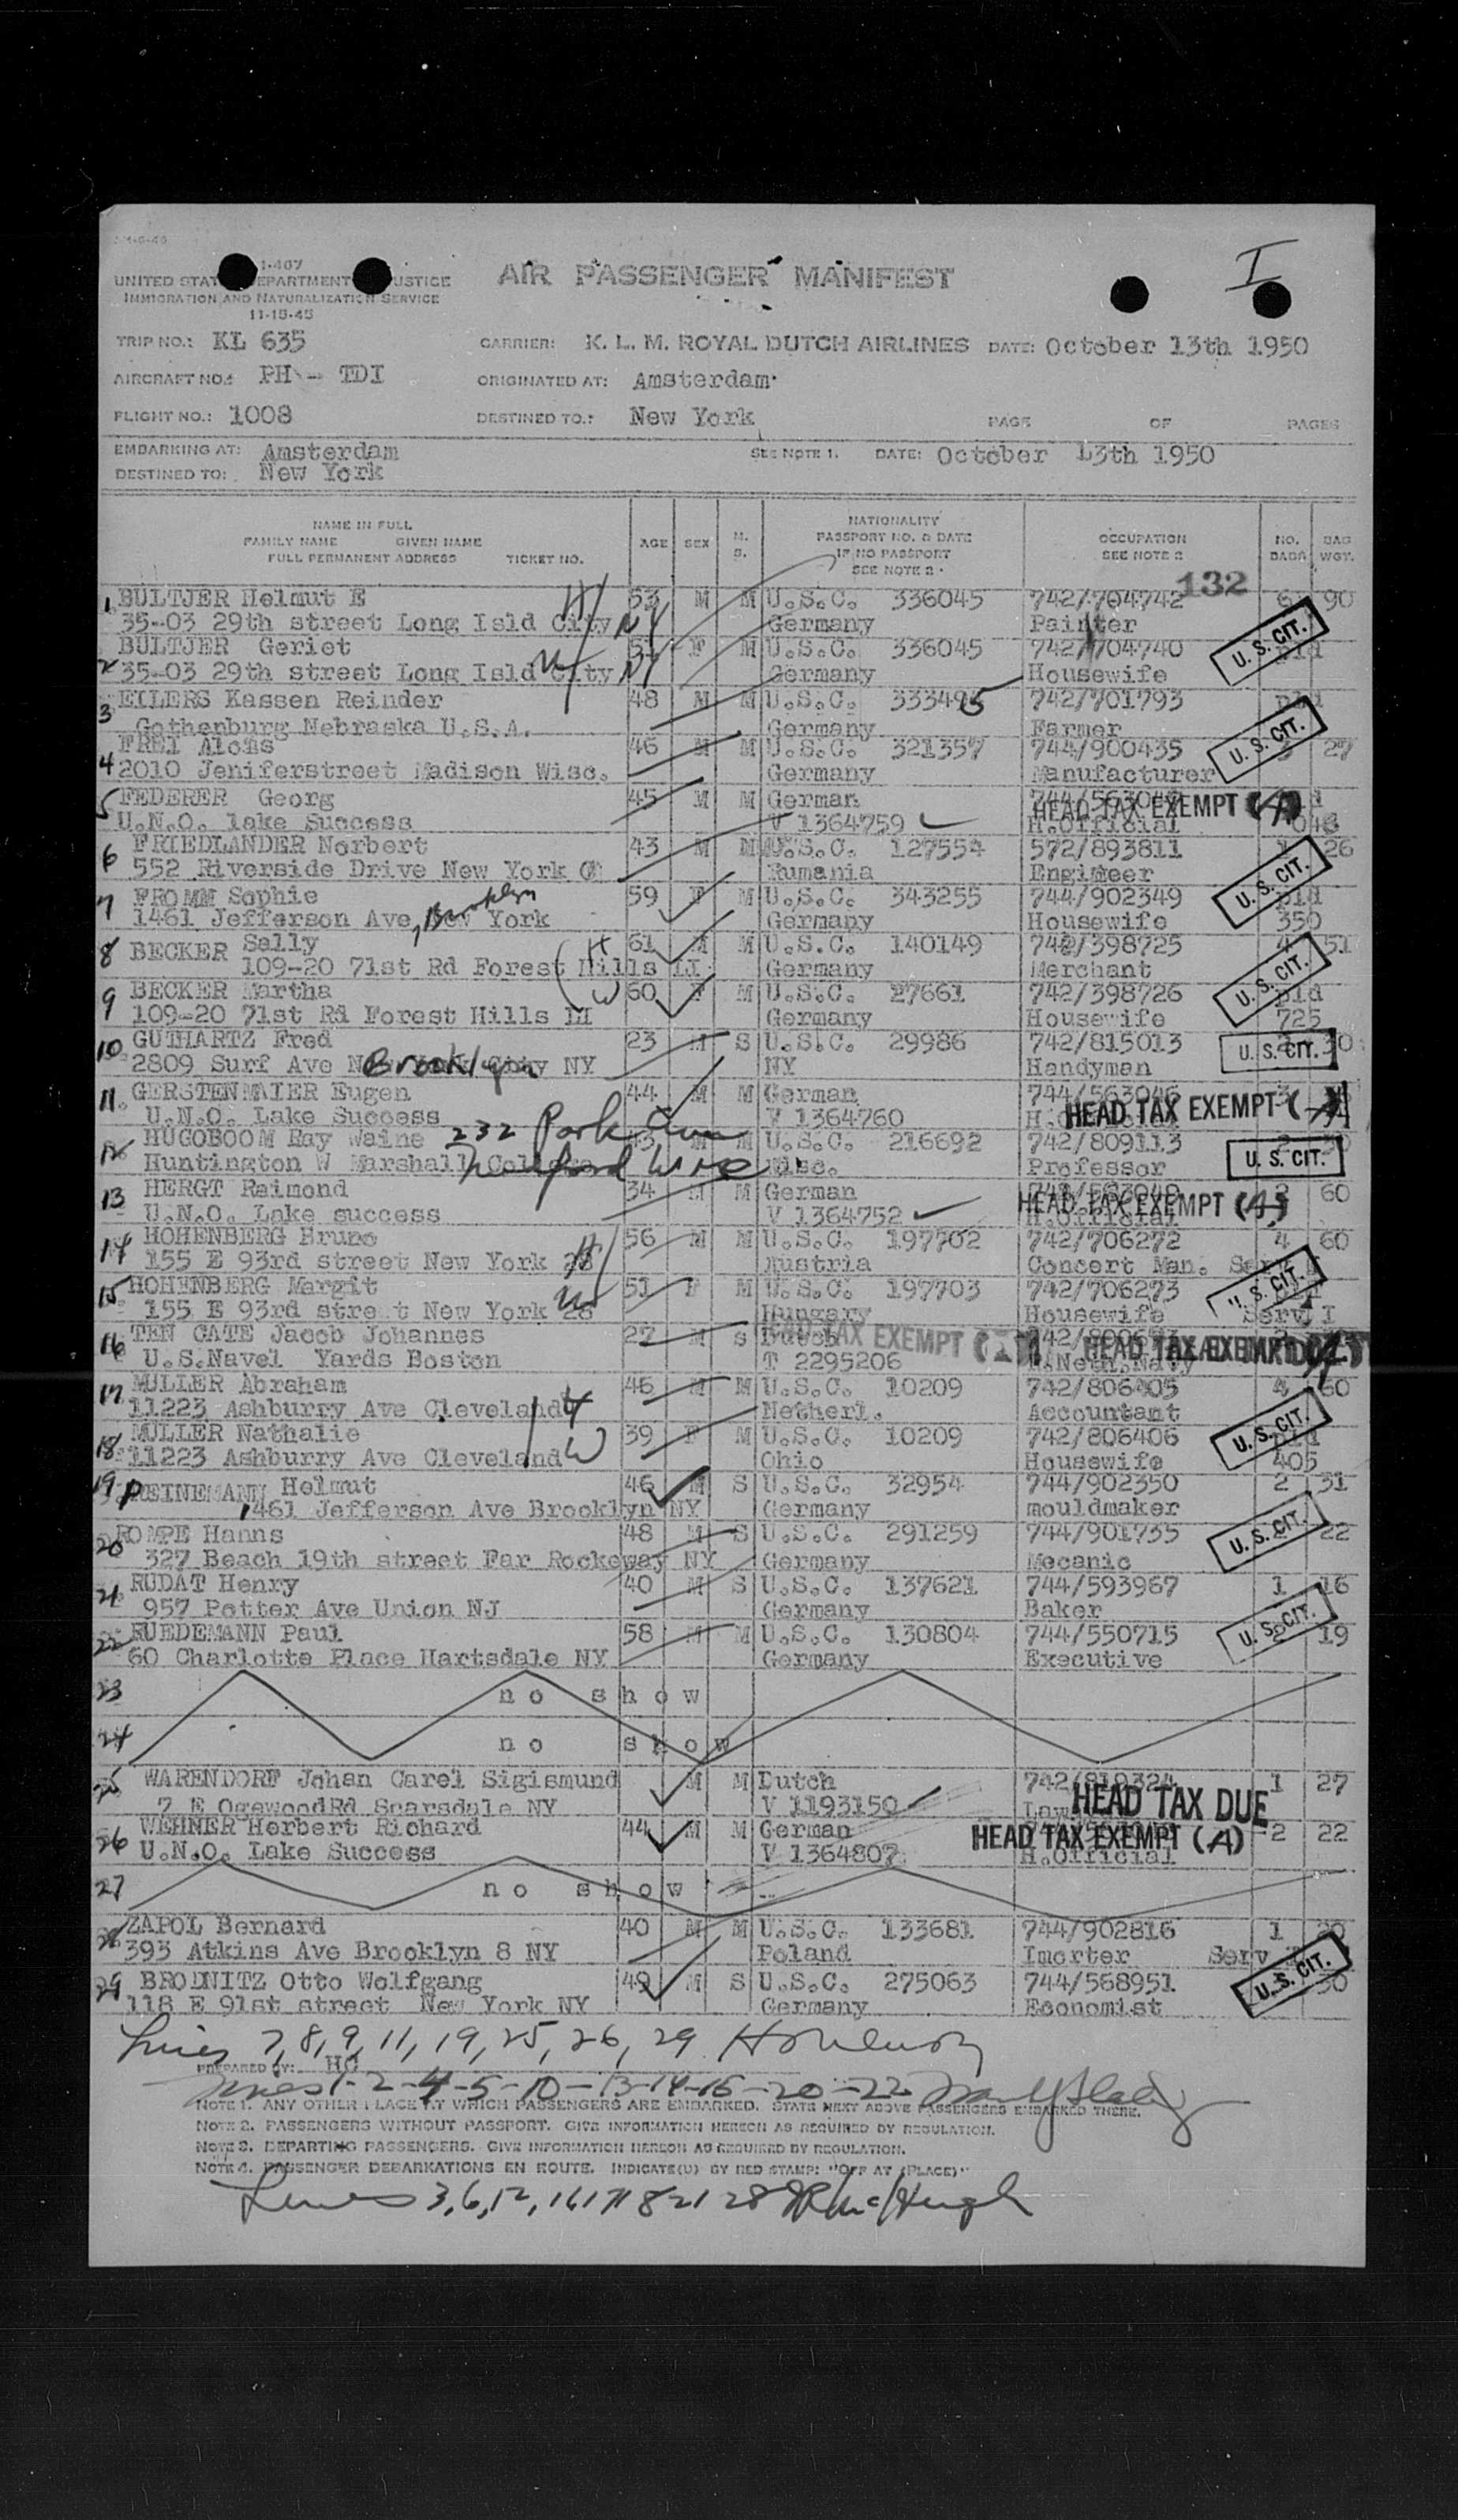 I
I-407
UNITED STATES DEPARTMENT OF JUSTICE
IMMIGRATION AND NATURALIZATION SERVICE
11-15-45
AIR PASSENGER MANIFEST
TRIP NO.: KL 635 CARRIER: K. L. M. ROYAL DUTCH AIRLINES DATE: October 13th 1950
AIRCRAFT NO.: PH - TDI ORIGINATED AT: Amsterdam
FLIGHT NO.: 1008 DESTINED TO.: New York PAGE OF PAGES
EMBARKING AT: Amsterdam SEE NOTE 1. DATE: October 13th 1950
DESTINED TO: New York
NAME IN FULL
FAMILY NAME GIVEN NAME
FULL PERMANENT ADDRESS TICKET NO.
AGE SEX M. S.
NATIONALITY
PASSPORT NO. & DATE
IF NO PASSPORT
SEE NOTE 2
OCCUPATION
SEE NOTE 2
NO. BAGG BAG WGT.
132
1 BULTJER Helmut E H 53 M M U.S.C. 336045 742/704742 6 90
35-03 29th street Long Isld City NY Germany Painter
BULTJER Geriet F M U.S.C. 336045 742/704740 pld U.S. CIT.
2 35-03 29th street Long Isld City NY W Germany Housewife
3 EILERS Kassen Reinder 48 M M U.S.C. 333495 742/701793 pld
Gothenburg Nebraska U.S.A. Germany Farmer
FREI Alois 46 M M U.S.C. 321357 744/900435 3 27 U.S. CIT.
4 2010 Jeniferstreet Madison Wisc. Germany Manufacturer
5 FEDERER Georg 45 M M German HEAD TAX EXEMPT (A)
U.N.O. lake Success V 1364759 H.Official
6 FRIEDLANDER Norbert 43 M M U.S.C. 127554 572/893811 1 26
552 Riverside Drive New York Rumania Engineer U.S. CIT.
7 FROMM Sophie 59 F M U.S.C. 343255 744/902349 pld
1461 Jefferson Ave, Brooklyn New York Germany Housewife 350
8 BECKER Selly H 61 M M U.S.C. 140149 742/398725 4 51
109-20 71st Rd Forest Hills LI Germany Merchant U.S. CIT.
9 BECKER Martha W 60 F M U.S.C. 27661 742/398726 pld
109-20 71st Rd Forest Hills LI Germany Housewife 725
10 GUTHARTZ Fred 23 M S U.S.C. 29986 742/815013 30 U.S. CIT.
2809 Surf Ave Brooklyn NY NY Handyman
11. GERSTENMAIER Eugen 44 M M German 744/563046 3
U.N.O. Lake Success V 1364760 HEAD TAX EXEMPT (A)
12 HUGOBOOM Ray Waine 232 Park Ave M M U.S.C. 216692 742/809113 2 30
Huntington W Marshall College Wisc. Professor U.S. CIT.
13 HERGT Raimond 34 M M German 2 60
U.N.O. Lake success V 1364752 HEAD TAX EXEMPT (A) H.Official
14 HOHENBERG Bruno H 56 M M U.S.C. 197702 742/706272 4 60
155 E 93rd street New York 28 Austria Concert Man.
15 HOHENBERG Margit W 51 F M U.S.C. 197703 742/706273 U.S. CIT.
155 E 93rd street New York 28 Hungary Housewife Serv I
16 TEN CATE Jacob Johannes 27 M S Dutch HEAD TAX EXEMPT HEAD TAX EXEMPT
U.S.Navel Yards Boston T 2295206 Neth.Navy
17 MULLER Abraham H 46 M M U.S.C. 10209 742/806405 4 60
11223 Ashburry Ave Cleveland Netherl. Accountant
18 MULLER Nathalie W 39 F M U.S.C. 10209 742/806406 pld U.S. CIT.
11223 Ashburry Ave Cleveland Ohio Housewife 405
19 REINEMANN Helmut 46 M S U.S.C. 32954 744/902350 2 31
1461 Jefferson Ave Brooklyn NY Germany mouldmaker
20 ROMPE Hanns 48 M S U.S.C. 291259 744/901735 22 U.S. CIT.
327 Beach 19th street Far Rockeway NY Germany Mecanic
21 RUDAT Henry 40 M S U.S.C. 137621 744/593967 1 16
957 Potter Ave Union NJ Germany Baker
22 RUEDEMANN Paul 58 M M U.S.C. 130804 744/550715 2 19 U.S. CIT.
60 Charlotte Place Hartsdale NY Germany Executive
23 no show
24 no show
25 WARENDORF Johan Carel Sigismund M M Dutch 742/819324 1 27
7 E OgewoodRd Scarsdale NY V 1193150 HEAD TAX DUE
26 WEHNER Herbert Richard 44 M M German HEAD TAX EXEMPT (A) 2 22
U.N.O. Lake Success V 1364807 H.Official
27 no show
28 ZAPOL Bernard 40 M M U.S.C. 133681 744/902816 1 30
393 Atkins Ave Brooklyn 8 NY Poland Imorter Serv
29 BRODNITZ Otto Wolfgang 49 M S U.S.C. 275063 744/568951 30 U.S. CIT.
118 E 91st street New York NY Germany Economist
Lines 7,8,9,11,19,25,26,29
PREPARED BY: HO
Lines 1-2-4-5-10-13-14-15-20-22
NOTE 1. ANY OTHER PLACE AT WHICH PASSENGERS ARE EMBARKED. STATE NEXT ABOVE PASSENGERS EMBARKED THERE.
NOTE 2. PASSENGERS WITHOUT PASSPORT. GIVE INFORMATION HEREON AS REQUIRED BY REGULATION.
NOTE 3. DEPARTING PASSENGERS. GIVE INFORMATION HEREON AS REQUIRED BY REGULATION.
NOTE 4. PASSENGER DEBARKATIONS EN ROUTE. INDICATE(U) BY RED STAMP: "OFF AT (PLACE)"
Lines 3,6,12,16 17 18 21 28 McHugh